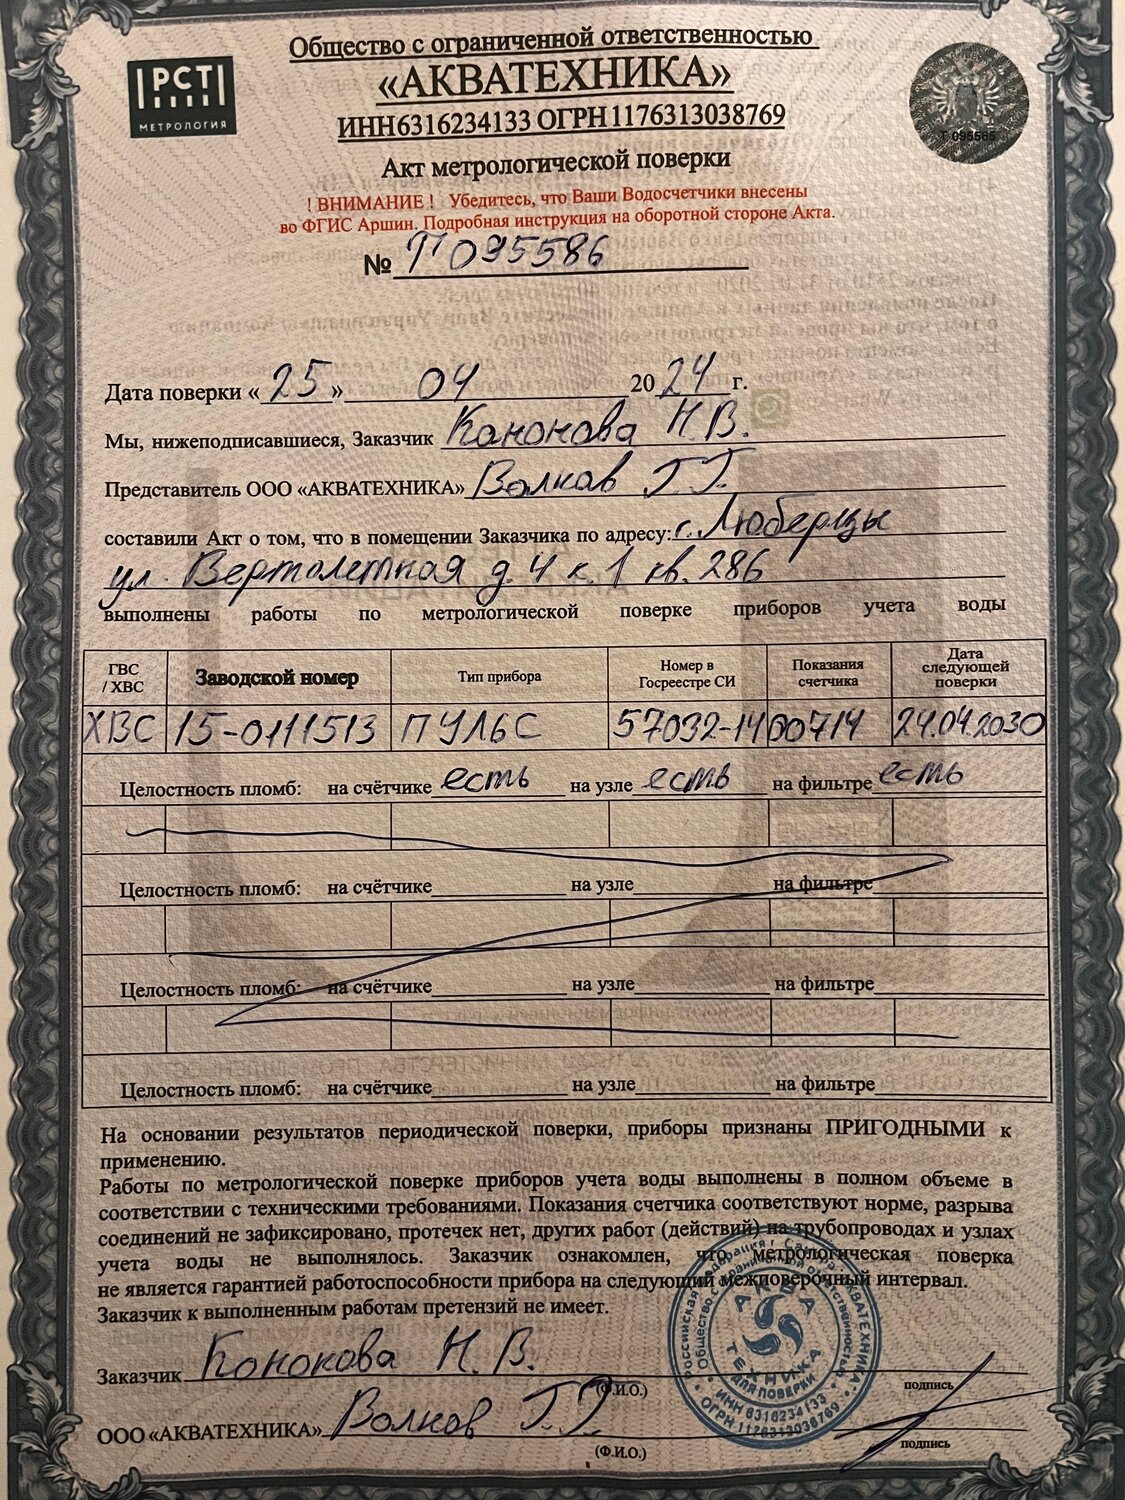 Общество с ограниченной ответственностью
«АКВАТЕХНИКА»
ИНН6316234133 ОГРН1176313038769
РСТ
МЕТРОЛОГИЯ
Т 095586
Акт метрологической поверки
! ВНИМАНИЕ ! Убедитесь, что Ваши Водосчетчики внесены
во ФГИС Аршин. Подробная инструкция на оборотной стороне Акта.
№ Т 095586
Дата поверки «25» 04 2024 г.
Мы, нижеподписавшиеся, Заказчик Кононова Н.В.
Представитель ООО «АКВАТЕХНИКА» Волков Г.Г.
составили Акт о том, что в помещении Заказчика по адресу: г. Люберцы
ул. Вертолетная д. 4 к. 1 кв. 286
выполнены работы по метрологической поверке приборов учета воды
ГВС / ХВС Заводской номер Тип прибора Номер в Госреестре СИ Показания счетчика Дата следующей поверки
ХВС 15-0111513 ПУЛЬС 57032-14 00714 24.04.2030
Целостность пломб: на счётчике есть на узле есть на фильтре есть
Целостность пломб: на счётчике на узле на фильтре
Целостность пломб: на счётчике на узле на фильтре
Целостность пломб: на счётчике на узле на фильтре
На основании результатов периодической поверки, приборы признаны ПРИГОДНЫМИ к
применению.
Работы по метрологической поверке приборов учета воды выполнены в полном объеме в
соответствии с техническими требованиями. Показания счетчика соответствуют норме, разрыва
соединений не зафиксировано, протечек нет, других работ (действий) на трубопроводах и узлах
учета воды не выполнялось. Заказчик ознакомлен, что метрологическая поверка
не является гарантией работоспособности прибора на следующий межповерочный интервал.
Заказчик к выполненным работам претензий не имеет.
Заказчик Кононова Н.В.
(Ф.И.О.) подпись
ООО «АКВАТЕХНИКА» Волков Г.Г.
(Ф.И.О.) подпись
Общество с ограниченной ответственностью
АКВА
ТЕХНИКА
ДЛЯ ПОВЕРКИ
ИНН 6316234133
ОГРН 1176313038769